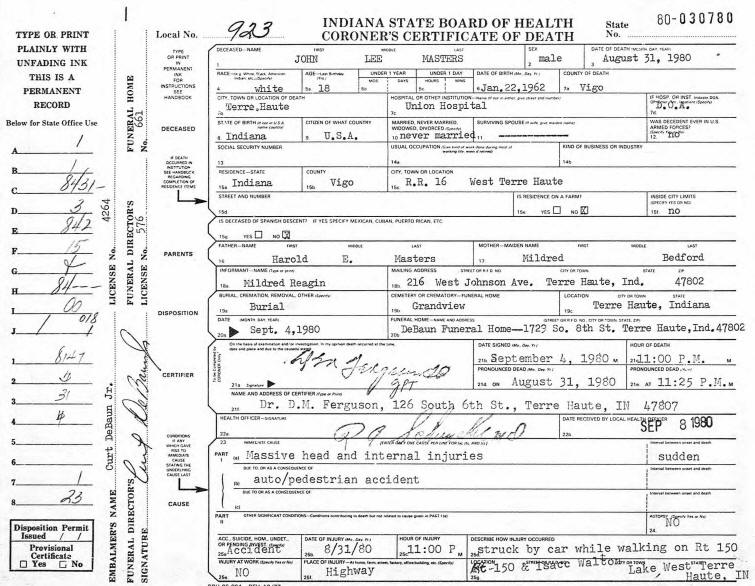 INDIANA STATE BOARD OF HEALTH
CORONER'S CERTIFICATE OF DEATH
Local No. 923
State No. 80-030780
TYPE OR PRINT
PLAINLY WITH
UNFADING INK
THIS IS A
PERMANENT
RECORD
Below for State Office Use
A 1
B 1
C 8431-
D 3
E 842
F 15
G
H 84---
I 00
J 1 018
1 8147
2
3 31
4
5
6
7 1
8 23
Disposition Permit
Issued / /
Provisional
Certificate
Yes No
EMBALMER'S NAME Curt DeBaun Jr. LICENSE No. 4264
FUNERAL DIRECTOR'S SIGNATURE Curt DeBaun Jr
FUNERAL DIRECTOR'S LICENSE No. 576
FUNERAL HOME No. 661
TYPE
OR PRINT
IN
PERMANENT
INK
FOR
INSTRUCTIONS
SEE
HANDBOOK
DECEASED
IF DEATH
OCCURRED IN
INSTITUTION
SEE HANDBOOK
REGARDING
COMPLETION OF
RESIDENCE ITEMS
PARENTS
DISPOSITION
CERTIFIER
CONDITIONS
IF ANY
WHICH GAVE
RISE TO
IMMEDIATE
CAUSE
STATING THE
UNDERLYING
CAUSE LAST
CAUSE
DECEASED—NAME FIRST MIDDLE LAST
1 JOHN LEE MASTERS
SEX
2 male
DATE OF DEATH (MONTH, DAY, YEAR)
3 August 31, 1980
RACE
4 white
AGE—Last Birthday
5a 18
UNDER 1 YEAR
MOS DAYS
UNDER 1 DAY
HOURS MINS
DATE OF BIRTH (Mo., Day, Yr.)
6 Jan.22,1962
COUNTY OF DEATH
7a Vigo
CITY, TOWN OR LOCATION OF DEATH
Terre Haute
HOSPITAL OR OTHER INSTITUTION—Name (If not in either, give street and number)
7c Union Hospital
IF HOSP. OR INST.
7d D.O.A.
STATE OF BIRTH (If not in U.S.A. name country)
8 Indiana
CITIZEN OF WHAT COUNTRY
9 U.S.A.
MARRIED, NEVER MARRIED,
WIDOWED, DIVORCED (Specify)
10 never married
SURVIVING SPOUSE (If wife, give maiden name)
11
WAS DECEDENT EVER IN U.S.
ARMED FORCES?
12 no
SOCIAL SECURITY NUMBER
13
USUAL OCCUPATION (Give kind of work done during most of
working life, even if retired)
14a
KIND OF BUSINESS OR INDUSTRY
14b
RESIDENCE—STATE
15a Indiana
COUNTY
15b Vigo
CITY, TOWN OR LOCATION
15c R.R. 16 West Terre Haute
STREET AND NUMBER
15d
IS RESIDENCE ON A FARM?
15e YES NO X
INSIDE CITY LIMITS
(SPECIFY YES OR NO)
15f no
IS DECEASED OF SPANISH DESCENT? IF YES SPECIFY MEXICAN, CUBAN, PUERTO RICAN, ETC.
15g YES NO X
FATHER—NAME FIRST MIDDLE LAST
16 Harold E. Masters
MOTHER—MAIDEN NAME FIRST MIDDLE LAST
17 Mildred Bedford
INFORMANT—NAME (Type or print)
18a Mildred Reagin
MAILING ADDRESS STREET OR R.F.D. NO. CITY OR TOWN STATE ZIP
18b 216 West Johnson Ave. Terre Haute, Ind. 47802
BURIAL, CREMATION, REMOVAL, OTHER (Specify)
19a Burial
CEMETERY OR CREMATORY—FUNERAL HOME
19b Grandview
LOCATION CITY OR TOWN STATE
19c Terre Haute, Indiana
DATE (MONTH, DAY, YEAR)
20a Sept. 4,1980
FUNERAL HOME—NAME AND ADDRESS (STREET OR R.F.D. NO., CITY OR TOWN, STATE, ZIP)
DeBaun Funeral Home—1729 So. 8th St. Terre Haute,Ind.47802
To be Completed by CORONER Only
On the basis of examination and/or investigation, in my opinion death occurred at the time,
date and place and due to the cause(s) stated.
21a Signature DM Ferguson
DATE SIGNED (Mo., Day, Yr.)
21b September 4, 1980 M
HOUR OF DEATH
21c 11:00 P.M. M
PRONOUNCED DEAD (Mo., Day, Yr.)
21d ON August 31, 1980
PRONOUNCED DEAD (Hour)
21e AT 11:25 P.M. M
NAME AND ADDRESS OF CERTIFIER (Type or Print)
21f Dr. D.M. Ferguson, 126 South 6th St., Terre Haute, IN 47807
HEALTH OFFICER—SIGNATURE
22a
DATE RECEIVED BY LOCAL HEALTH OFFICER
22b SEP 8 1980
23 IMMEDIATE CAUSE (ENTER ONLY ONE CAUSE PER LINE FOR (a), (b), AND (c).)
PART I
(a) Massive head and internal injuries
Interval between onset and death
sudden
DUE TO, OR AS A CONSEQUENCE OF
(b) auto/pedestrian accident
Interval between onset and death
DUE TO, OR AS A CONSEQUENCE OF
(c)
Interval between onset and death
PART II
OTHER SIGNIFICANT CONDITIONS—Conditions contributing to death but not related to cause given in PART I (a)
AUTOPSY (Specify Yes or No)
24 NO
ACC., SUICIDE, HOM., UNDET.,
OR PENDING INVEST. (Specify)
25a Accident
DATE OF INJURY (Mo., Day, Yr.)
25b 8/31/80
HOUR OF INJURY
25c 11:00 P M
DESCRIBE HOW INJURY OCCURRED
struck by car while walking on Rt 150
INJURY AT WORK (Specify Yes or No)
25e NO
PLACE OF INJURY—At home, farm, street, factory, office building, etc. (Specify)
25f Highway
LOCATION STREET OR R.F.D. NO. CITY OR TOWN STATE
Rt-150 & Isacc Walton Lake West Terre
Haute, IN